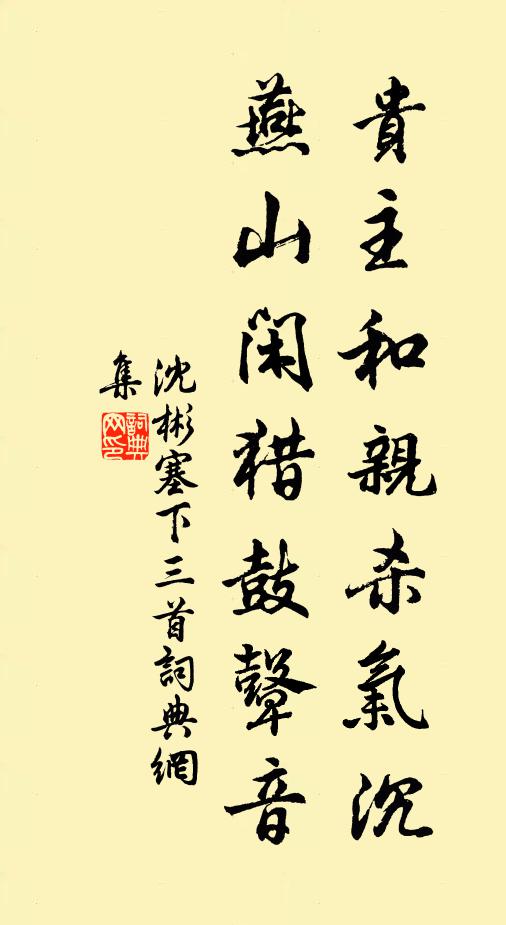 貴主和親杀氣沉
燕山闲猎鼓鼙音
沈彬塞下三首詞典網
集
詞典網印